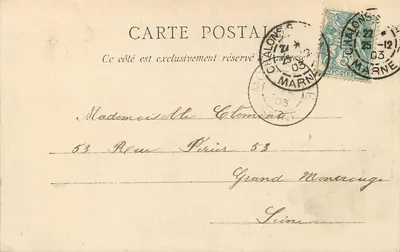 CARTE POSTALE
Ce côté est exclusivement réservé
CHALONS-S
23 12
03
MARNE
CHALONS-S
22 *
25-12
03
MARNE
03
Mademoiselle Clémence
53 Rue Périer 53
Grand Montrouge
Seine